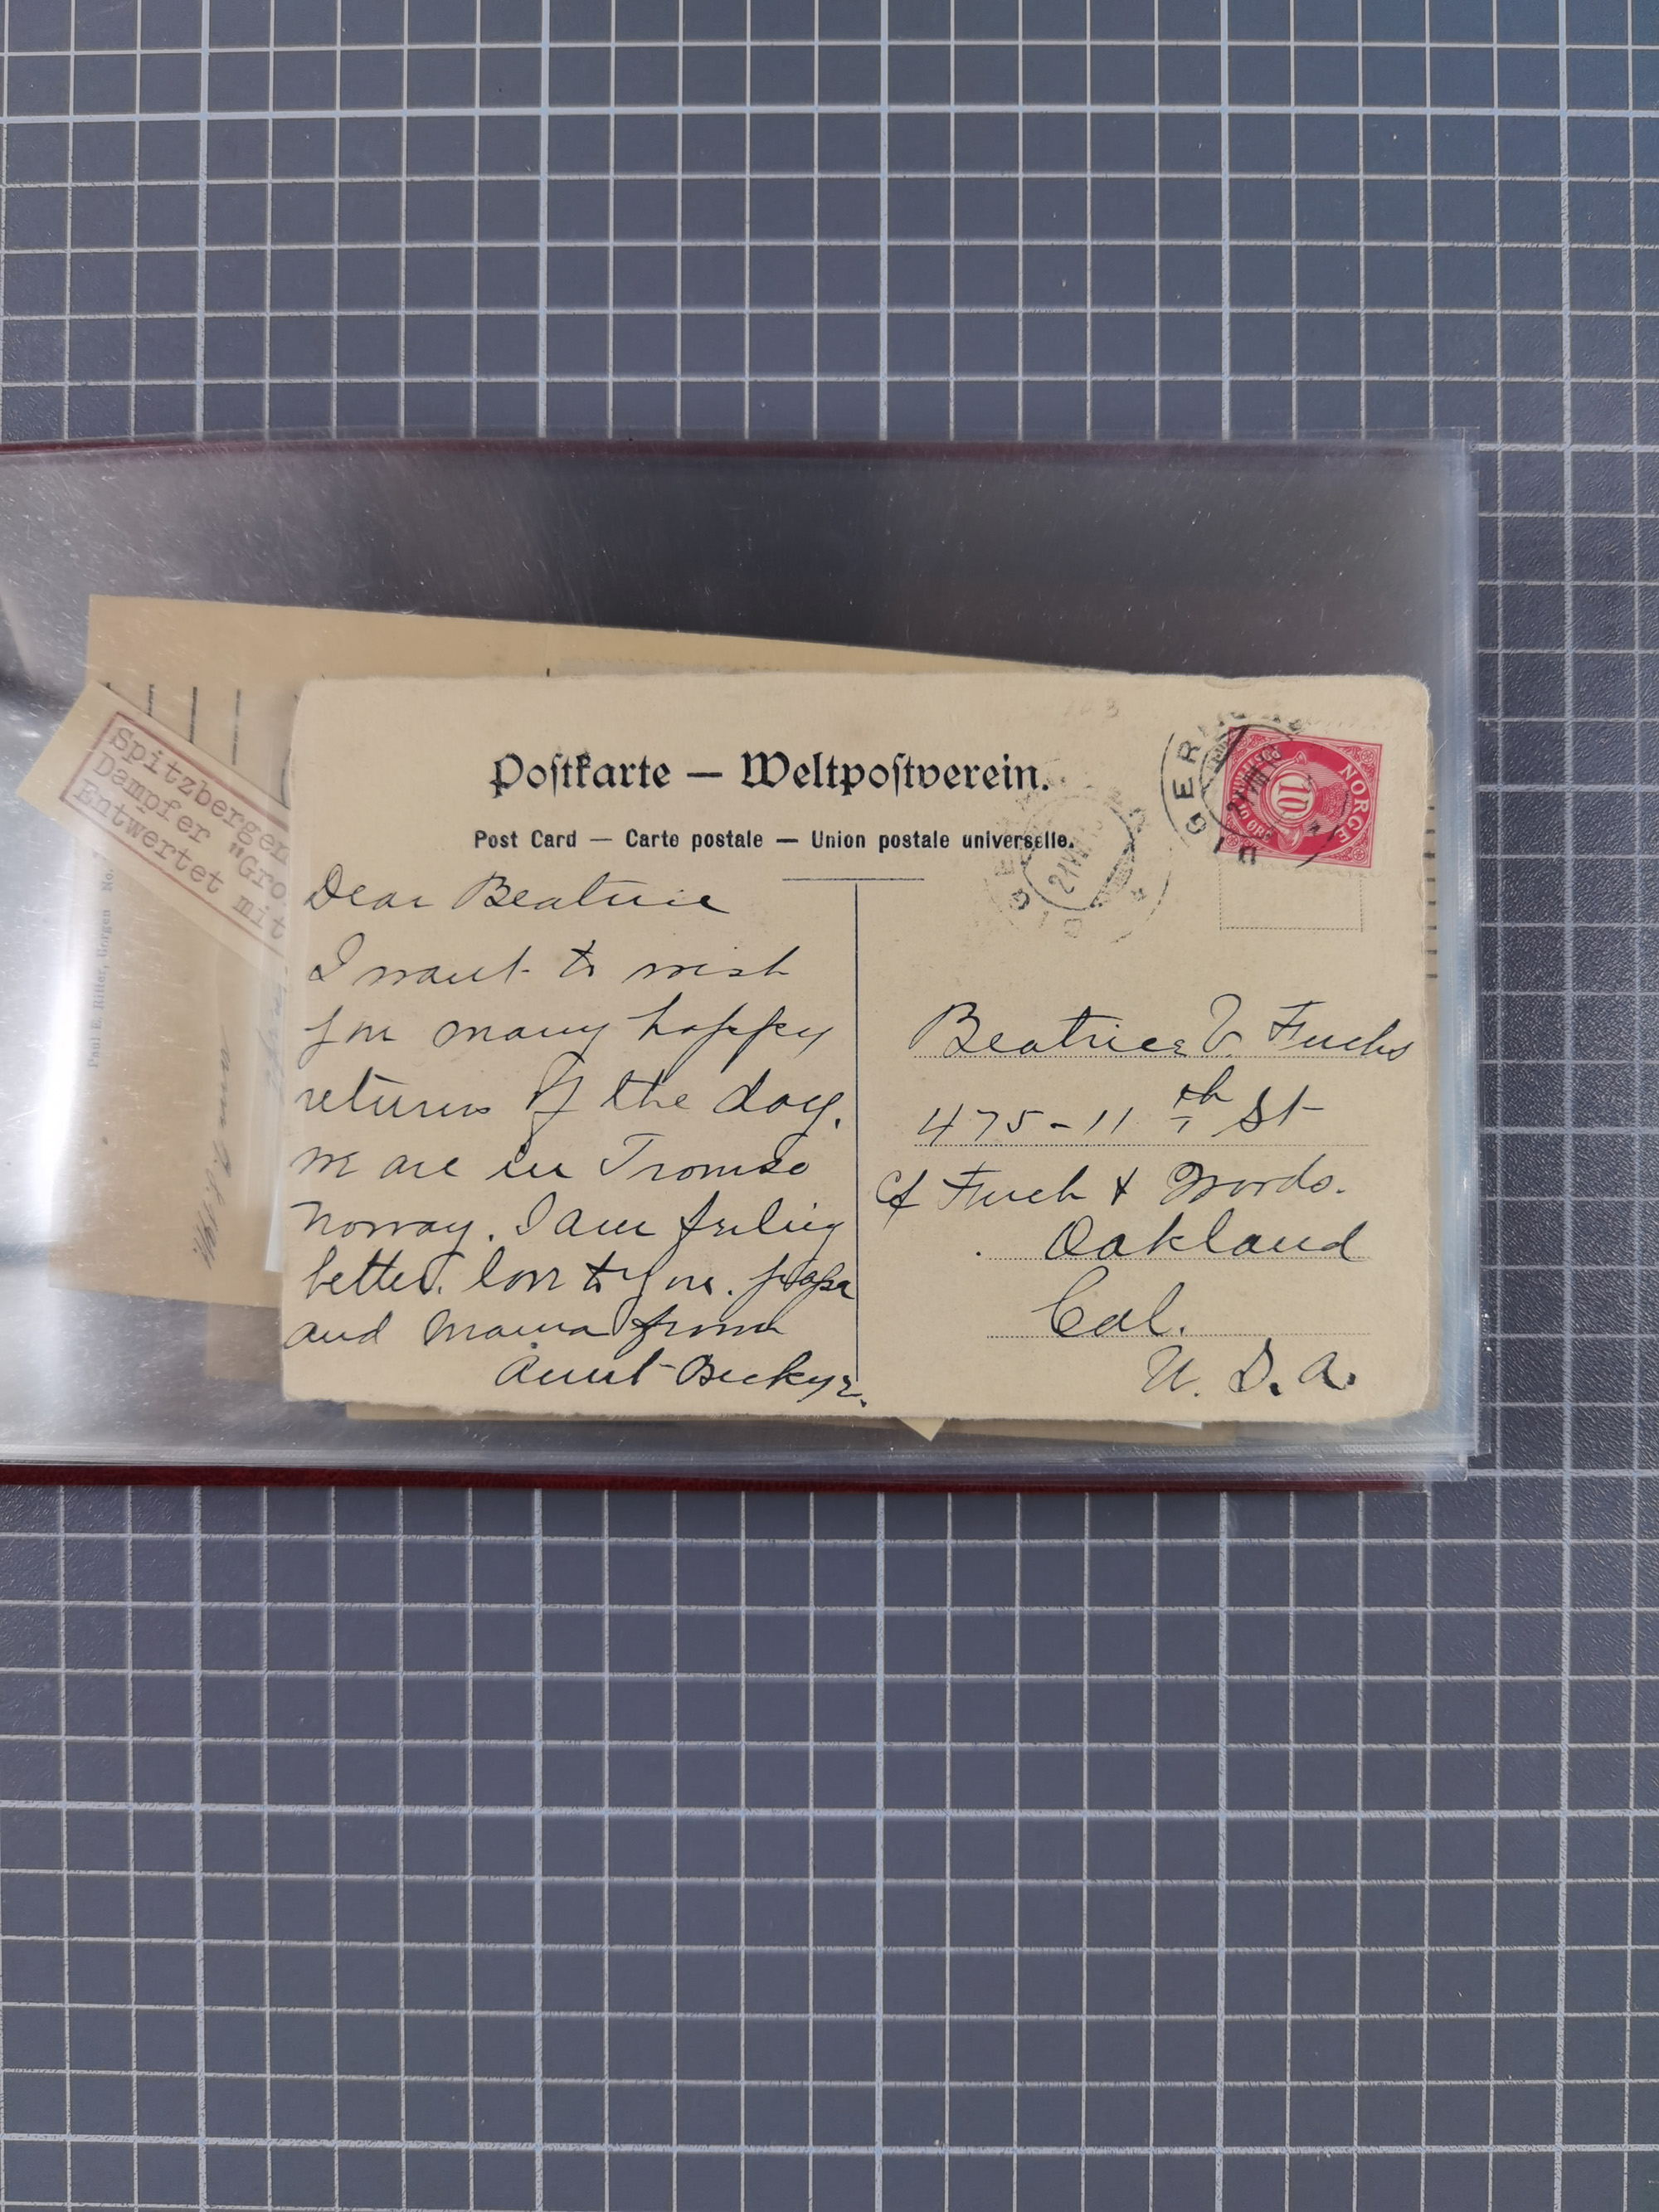 Postkarte — Weltpostverein.
Post Card — Carte postale — Union postale universelle.
NORGE
10
Spitzbergen
Dampfer "Gro
Entwertet mit
Paul E. Ritter, Bergen No.
Dear Beatrice
I want to wish
you many happy
returns of the day.
we are in Tromso
Norway. I am feeling
better. love to you. papa
and Mama from
Aunt Beckye.
Beatrice V. Fuchs
475-11th St
Oakland
Cal.
U. S. A.